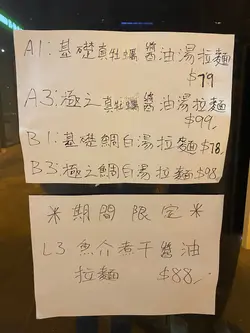 A1:基礎真牡蠣醬油湯拉麵
$79
A3:極之真牡蠣醬油湯拉麵
$99.
B1:基礎鯛白湯拉麵$78.
B3:極之鯛白湯拉麵$98.
米期間限定米
L3 魚介煮干醬油
拉麵 $88.